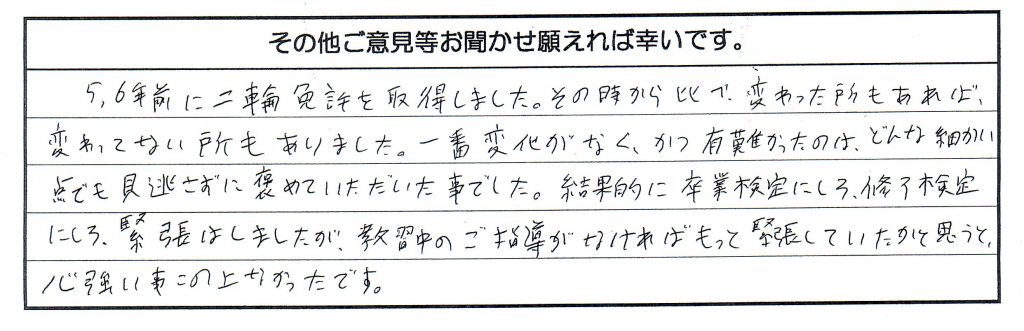 その他ご意見等お聞かせ願えれば幸いです。
5,6年前に二輪免許を取得しました。その時から比べ、変わった所もあれば、
変わってない所もありました。一番変化がなく、かつ有難かったのは、どんな細かい
点でも見逃さずに褒めていただいた事でした。結果的に卒業検定にしろ、修了検定
にしろ、緊張はしましたが、教習中のご指導がなければもって緊張していたかと思うと、
心強い事この上なかったです。